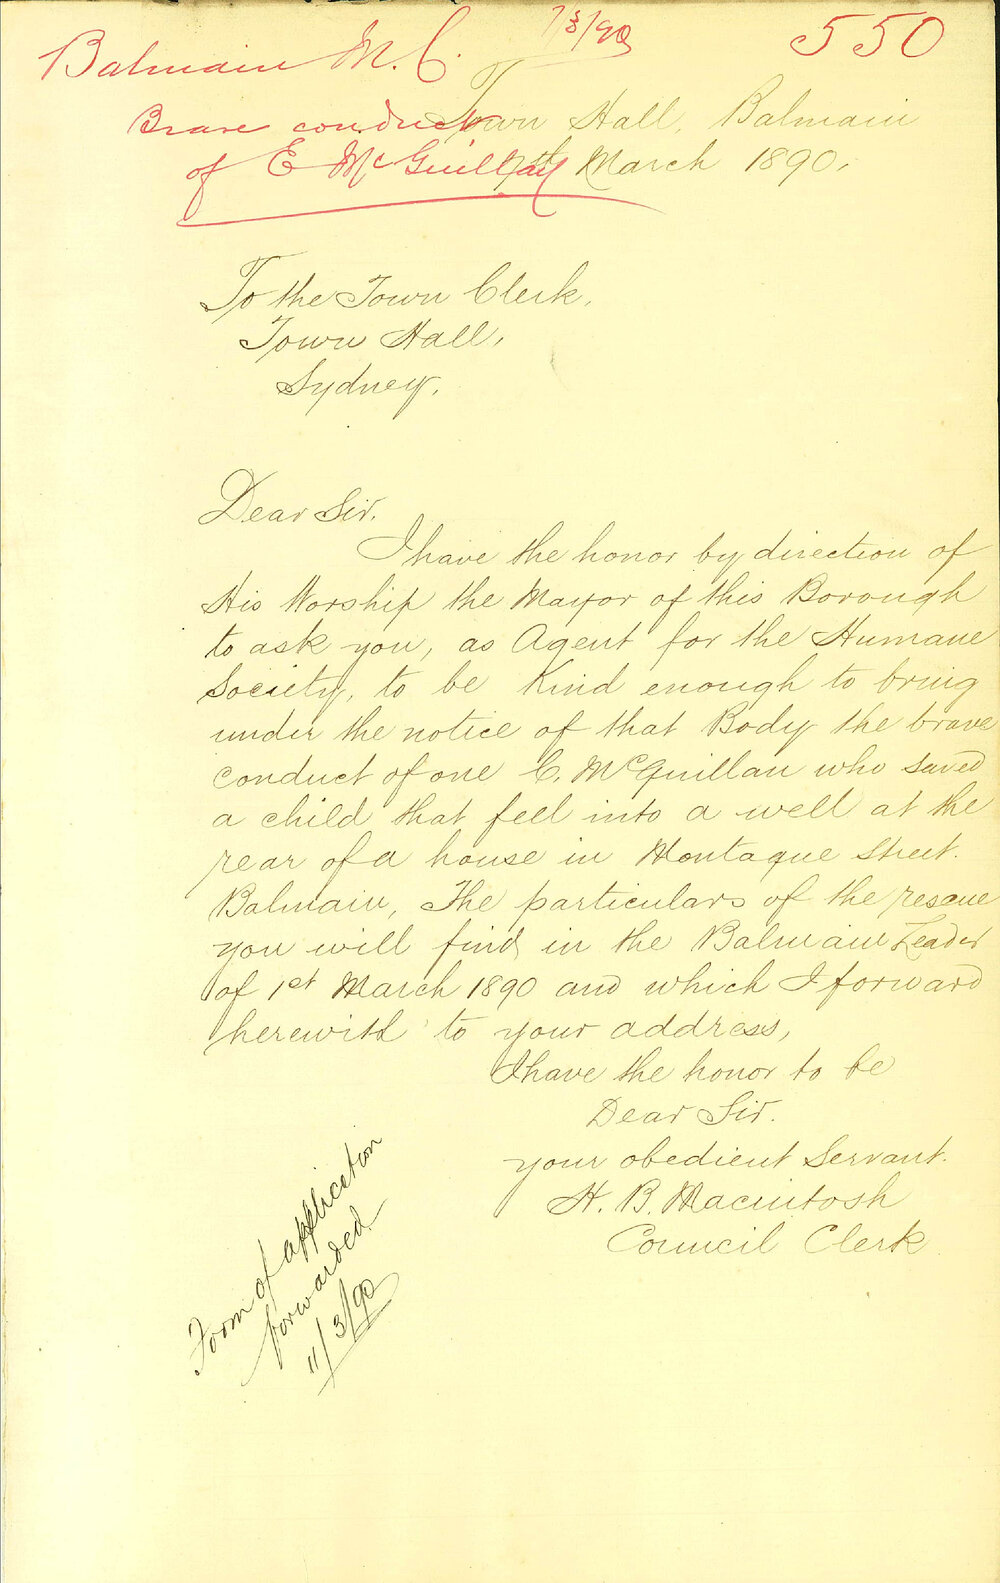 7/3/90
550
Balmain M. C.
Town Hall, Balmain
Brave conduct
March 1890.
of E McGuillan
To the Town Clerk,
Town Hall,
Sydney.
Dear Sir.
I have the honor by direction of
His Worship the Mayor of this Borough
to ask you, as Agent for the Humane
Society, to be kind enough to bring
under the notice of that Body the brave
conduct of one C. McGuillan who saved
a child that feel into a well at the
rear of a house in Montague Street.
Balmain, The particulars of the rescue
you will find in the Balmain Leader
of 1st March 1890 and which I forward
herewith to your address,
I have the honor to be
Dear Sir.
your obedient Servant.
H. B. Macintosh
Council Clerk
Form of application
forwarded
11/3/90